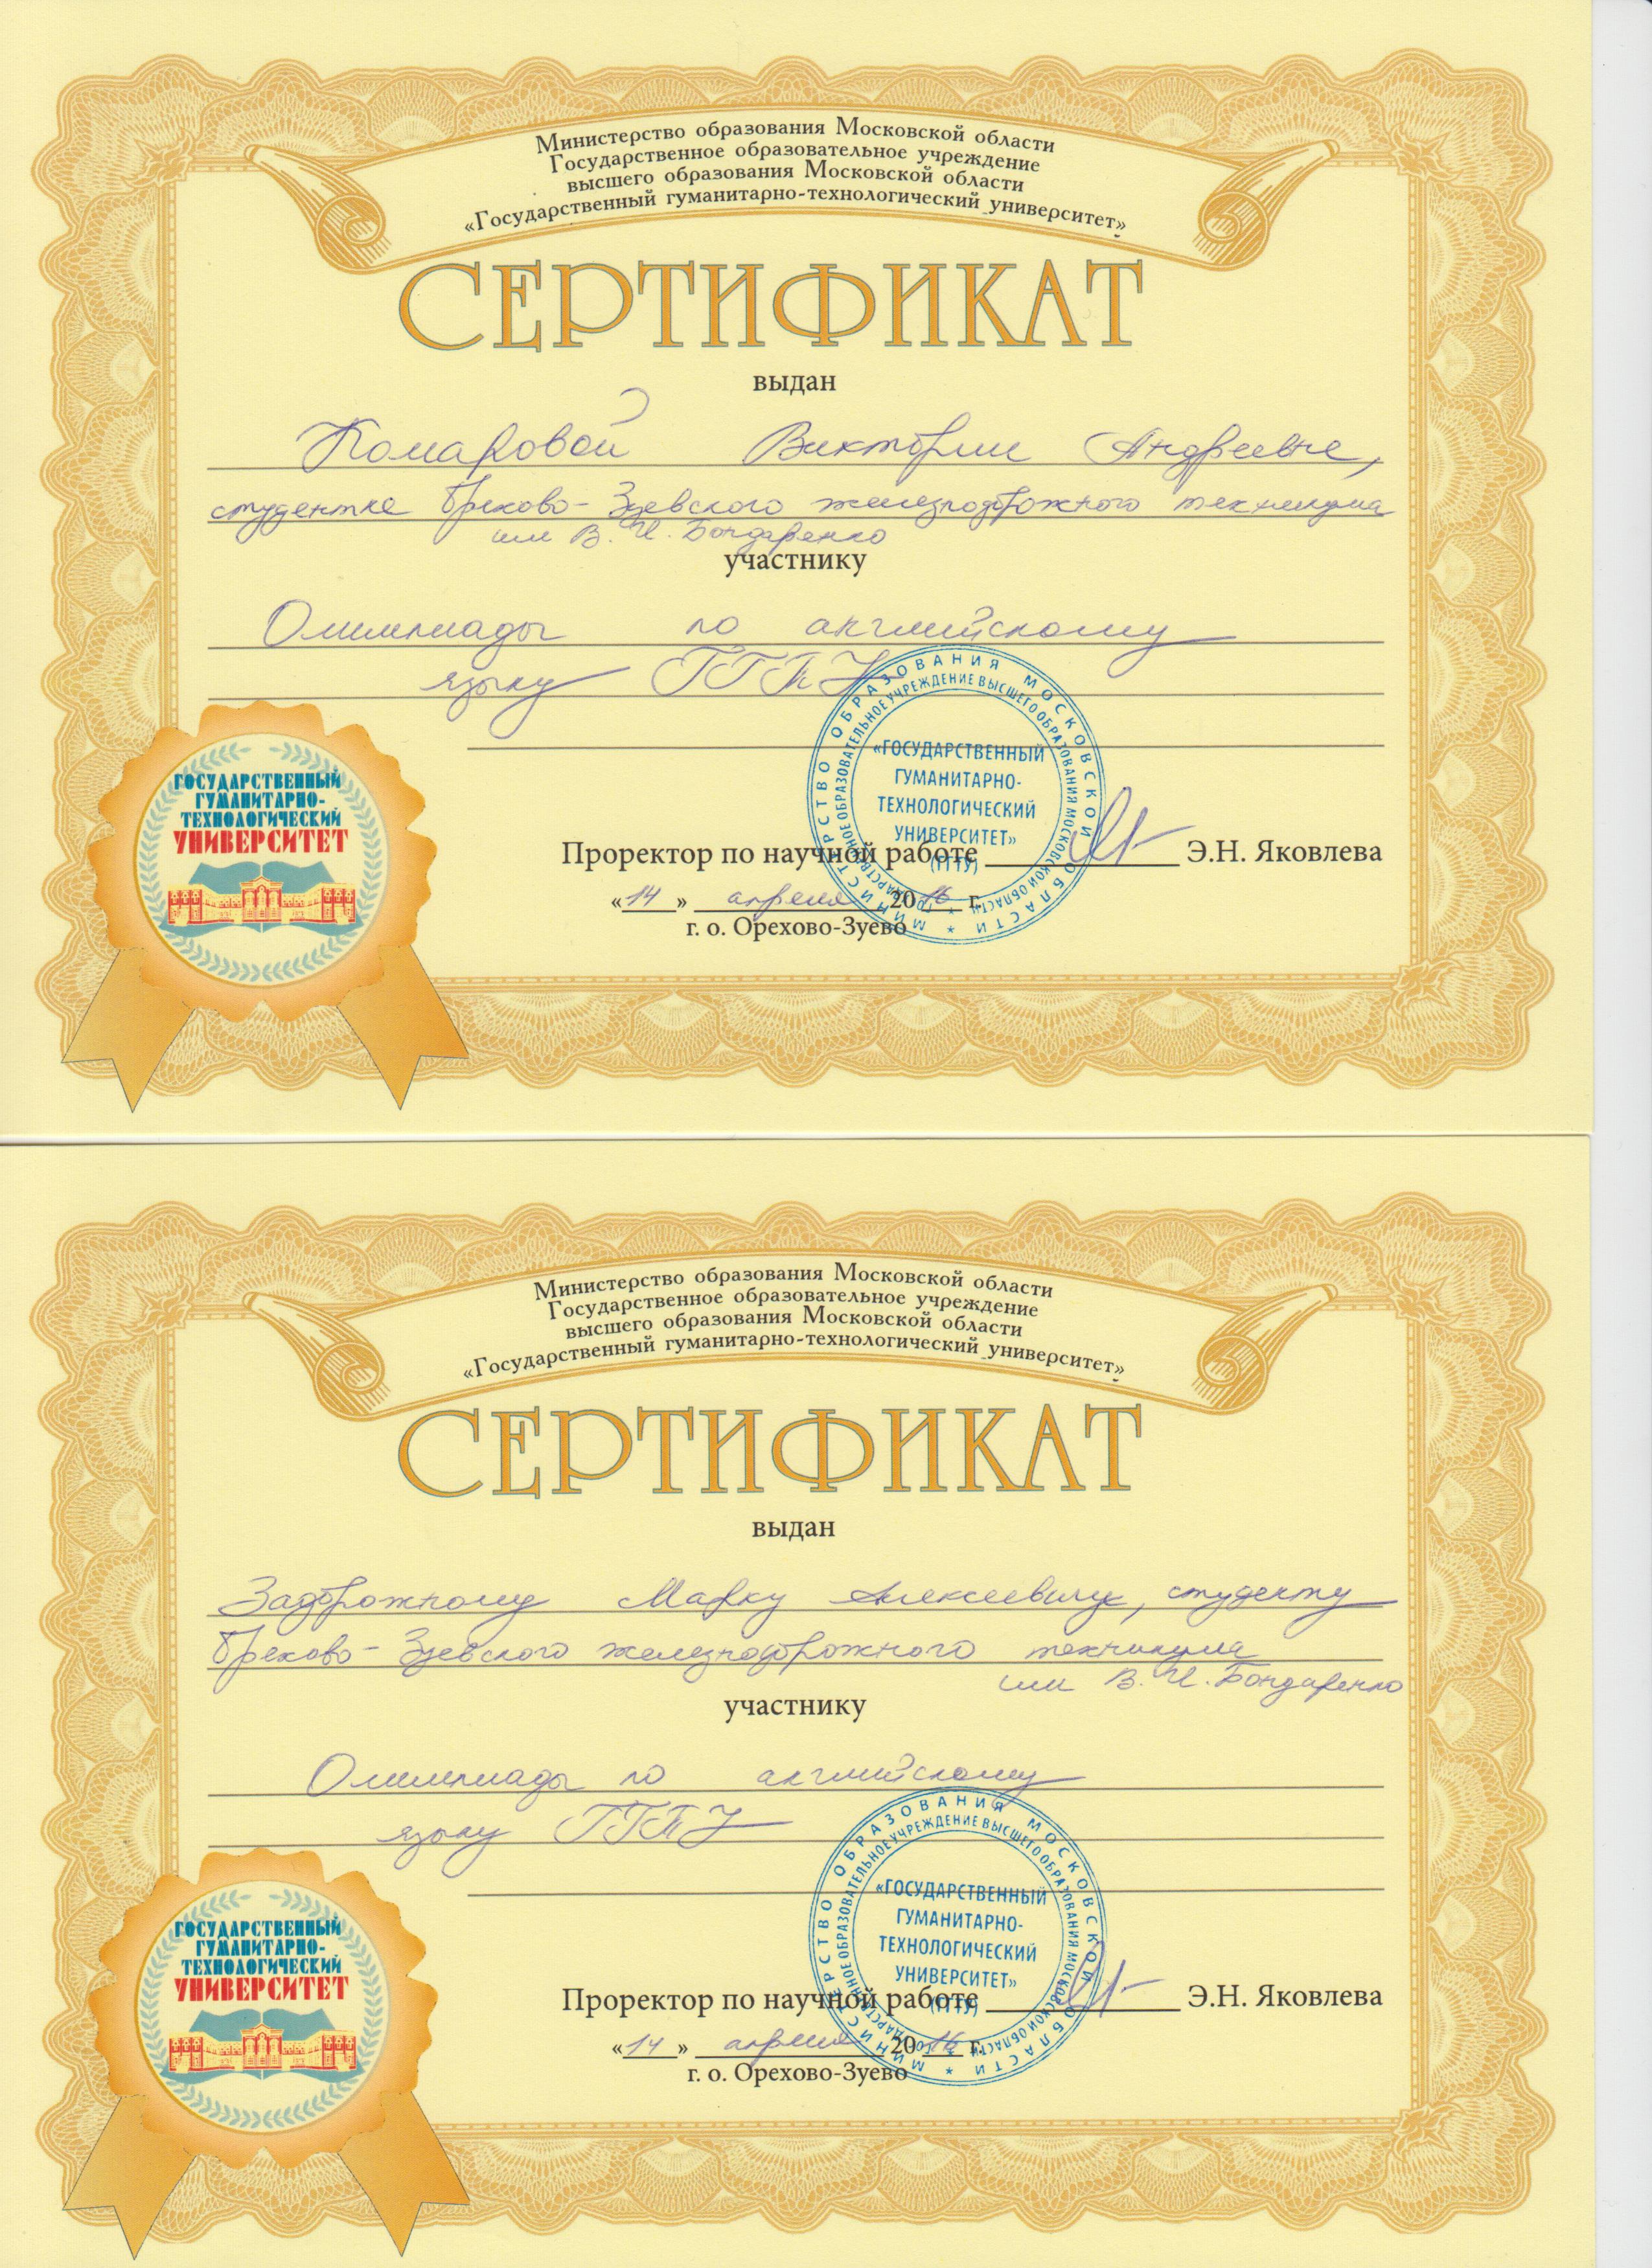 Министерство образования Московской области
Государственное образовательное учреждение
высшего образования Московской области
«Государственный гуманитарно-технологический университет»
СЕРТИФИКАТ
выдан
Комаровой Виктории Андреевне,
студентке Орехово-Зуевского железнодорожного техникума
им В.И. Бондаренко
участнику
Олимпиады по английскому
языку ГГТУ
МИНИСТЕРСТВО ОБРАЗОВАНИЯ МОСКОВСКОЙ ОБЛАСТИ *
ГОСУДАРСТВЕННОЕ ОБРАЗОВАТЕЛЬНОЕ УЧРЕЖДЕНИЕ ВЫСШЕГО ОБРАЗОВАНИЯ МОСКОВСКОЙ ОБЛАСТИ *
«ГОСУДАРСТВЕННЫЙ
ГУМАНИТАРНО-
ТЕХНОЛОГИЧЕСКИЙ
УНИВЕРСИТЕТ»
(ГГТУ)
ГОСУДАРСТВЕННЫЙ
ГУМАНИТАРНО-
ТЕХНОЛОГИЧЕСКИЙ
УНИВЕРСИТЕТ
Проректор по научной работе Э.Н. Яковлева
«14» апреля 2016 г.
г. о. Орехово-Зуево
Министерство образования Московской области
Государственное образовательное учреждение
высшего образования Московской области
«Государственный гуманитарно-технологический университет»
СЕРТИФИКАТ
выдан
Задорожному Марку Алексеевичу, студенту
Орехово-Зуевского железнодорожного техникума
им В.И. Бондаренко
участнику
Олимпиады по английскому
языку ГГТУ
МИНИСТЕРСТВО ОБРАЗОВАНИЯ МОСКОВСКОЙ ОБЛАСТИ *
ГОСУДАРСТВЕННОЕ ОБРАЗОВАТЕЛЬНОЕ УЧРЕЖДЕНИЕ ВЫСШЕГО ОБРАЗОВАНИЯ МОСКОВСКОЙ ОБЛАСТИ *
«ГОСУДАРСТВЕННЫЙ
ГУМАНИТАРНО-
ТЕХНОЛОГИЧЕСКИЙ
УНИВЕРСИТЕТ»
(ГГТУ)
ГОСУДАРСТВЕННЫЙ
ГУМАНИТАРНО-
ТЕХНОЛОГИЧЕСКИЙ
УНИВЕРСИТЕТ
Проректор по научной работе Э.Н. Яковлева
«14» апреля 2016 г.
г. о. Орехово-Зуево